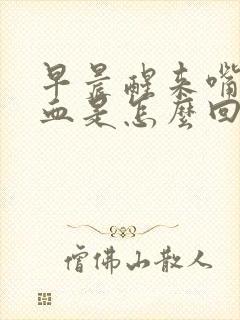 早晨醒来嘴
血是怎麼回
僧佛山散人